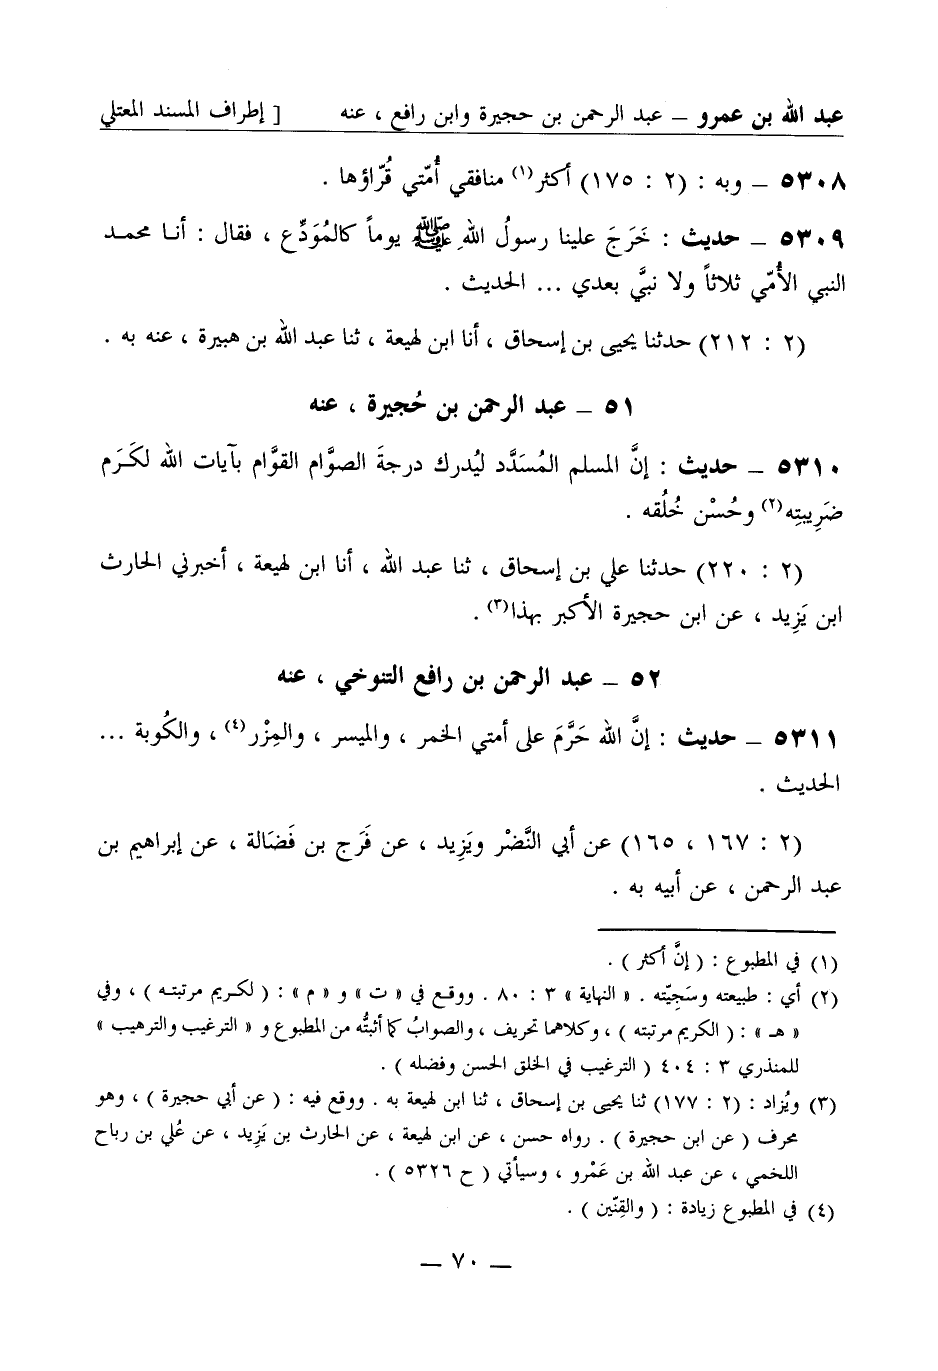 عبد الله بن عمرو – عبد الرحمن بن حجيرة وابن رافع ، عنه [ إطراف المسند المعتلي
٥٣٠٨ – وبه : (٢ : ١٧٥) أكثر(١) منافقي أُمّتي قُرّاؤها .
٥٣٠٩ – حديث : خَرَجَ علينا رسولُ اللهِ ﷺ يوماً كالمُوَدِّع ، فقال : أنا محمد
النبي الأُمّي ثلاثاً ولا نبيَّ بعدي ... الحديث .
(٢ : ٢١٢) حدثنا يحيى بن إسحاق ، أنا ابن لهيعة ، ثنا عبد الله بن هبيرة ، عنه به .
٥١ – عبد الرحمن بن حُجيرة ، عنه
٥٣١٠ – حديث : إنَّ المسلم المُسَدَّد ليُدرك درجةَ الصوَّام القوَّام بآيات الله لكَرَم
ضَرِيبتِه(٢) وحُسْن خُلُقه .
(٢ : ٢٢٠) حدثنا علي بن إسحاق ، ثنا عبد الله ، أنا ابن لهيعة ، أخبرني الحارث
ابن يَزِيد ، عن ابن حجيرة الأكبر بهذا(٣) .
٥٢ – عبد الرحمن بن رافع التنوخي ، عنه
٥٣١١ – حديث : إنَّ الله حَرَّمَ على أمتي الخمر ، والميسر ، والمِزْر(٤) ، والكُوبة ...
الحديث .
(٢ : ١٦٧ ، ١٦٥) عن أبي النَّضْر ويَزِيد ، عن فَرَج بن فَضَالة ، عن إبراهيم بن
عبد الرحمن ، عن أبيه به .
(١) في المطبوع : ( إنَّ أكثر ) .
(٢) أي : طبيعته وسَجِيّته . « النهاية » ٣ : ٨٠ . ووقع في « ت » و « م » : ( لكريم مرتبته ) ، وفي
« هـ » : ( الكريم مرتبته ) ، وكلاهما تحريف ، والصوابُ كما أثبتُّه من المطبوع و « الترغيب والترهيب »
للمنذري ٣ : ٤٠٤ ( الترغيب في الخلق الحسن وفضله ) .
(٣) ويُزاد : (٢ : ١٧٧) ثنا يحيى بن إسحاق ، ثنا ابن لهيعة به . ووقع فيه : ( عن أبي حجيرة ) ، وهو
محرف ( عن ابن حجيرة ) . رواه حسن ، عن ابن لهيعة ، عن الحارث بن يَزِيد ، عن عُلي بن رباح
اللخمي ، عن عبد الله بن عَمْرو ، وسيأتي ( ح ٥٣٢٦ ) .
(٤) في المطبوع زيادة : ( والقِنّين ) .
– ٧٠ –